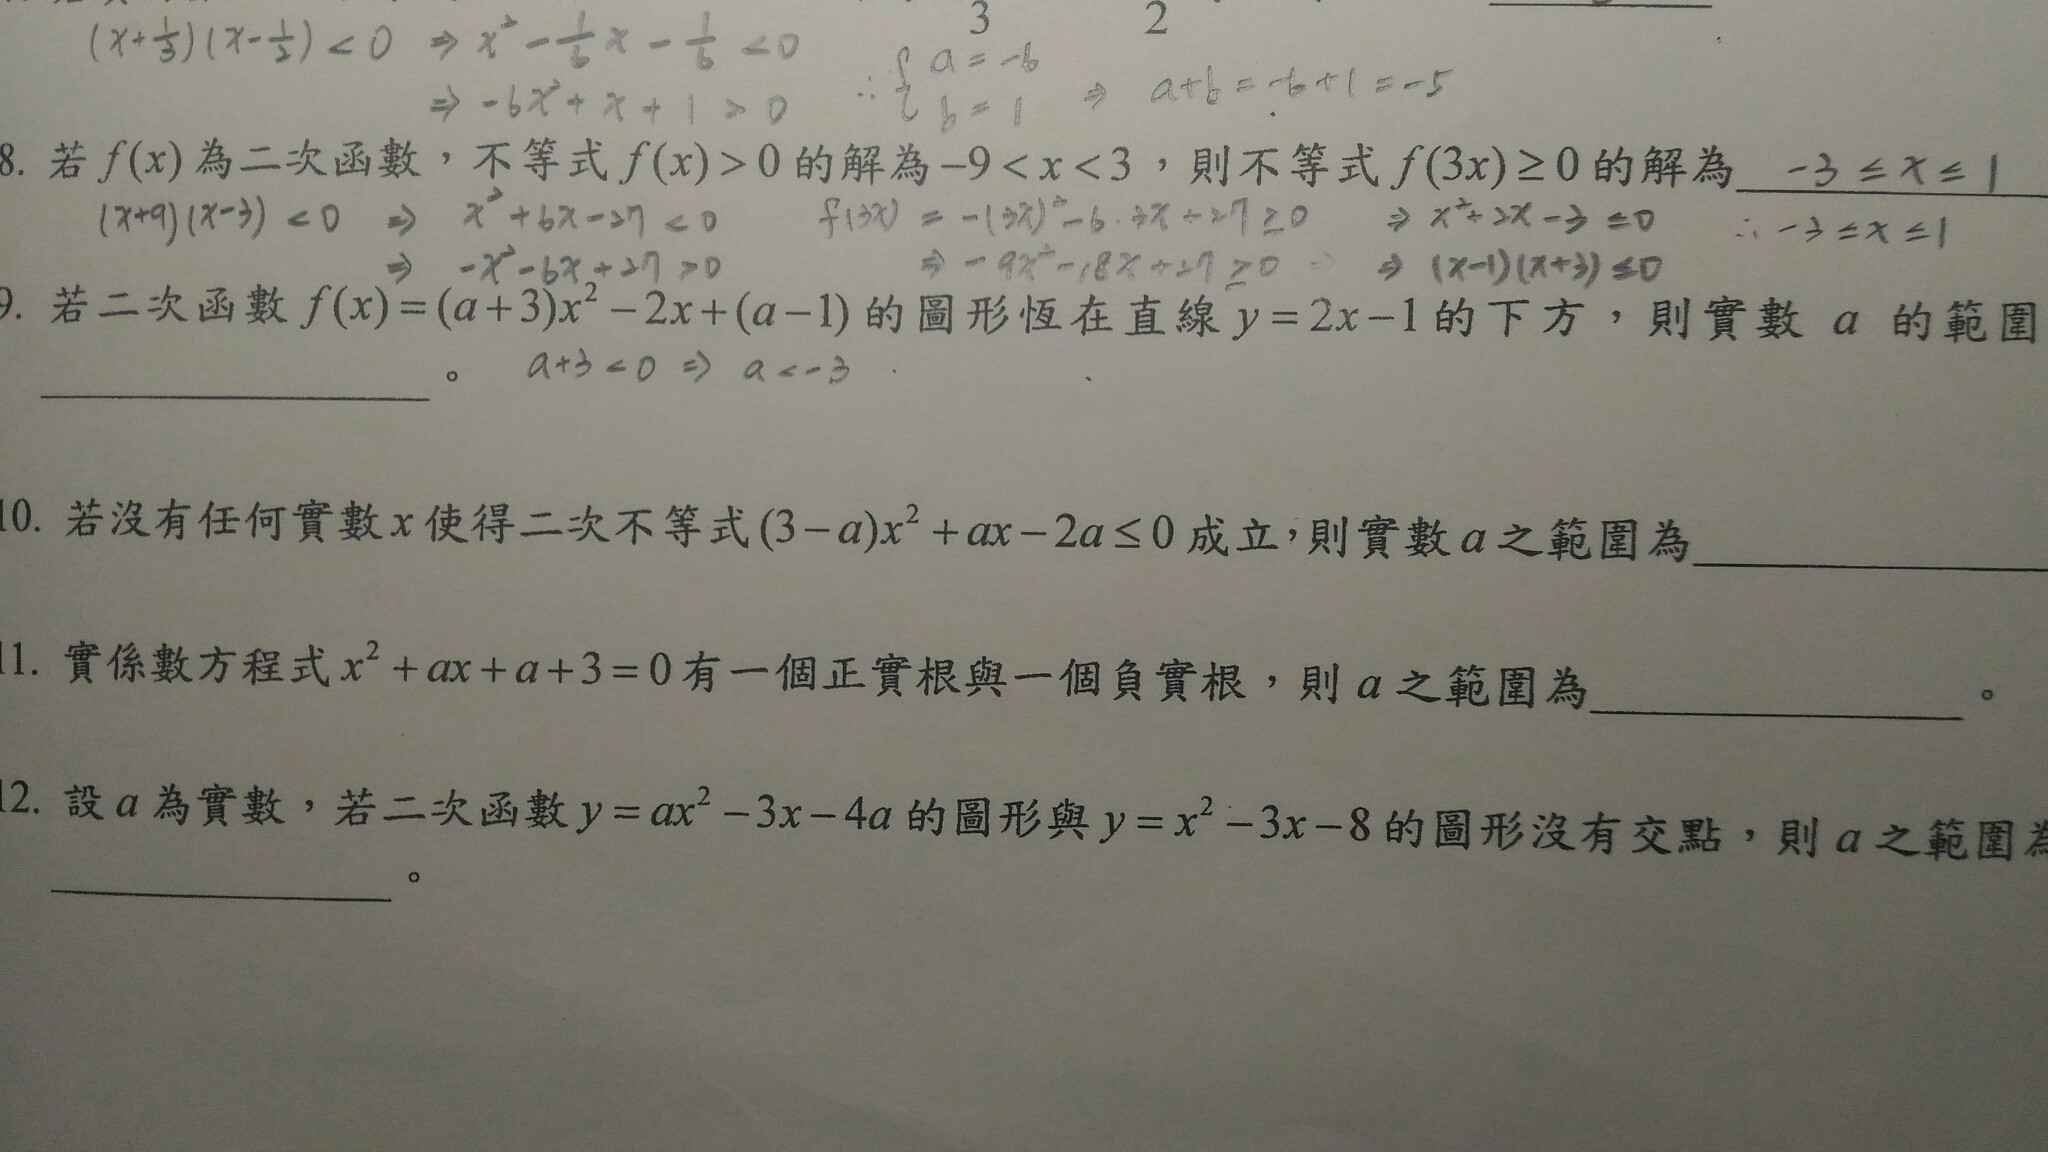 3 2
(x+1/3)(x-1/2)<0 ⇒ x²-1/6x-1/6<0 ∴{a=-6
⇒ -6x²+x+1>0 b=1 ⇒ a+b=-6+1=-5
8. 若f(x)為二次函數，不等式f(x)>0的解為-9<x<3，則不等式f(3x)≥0的解為 -3≤x≤1
(x+9)(x-3)<0 ⇒ x²+6x-27<0 f(3x)=-(3x)²-6·3x+27≥0 ⇒ x²+2x-3≤0 ∴-3≤x≤1
⇒ -x²-6x+27>0 ⇒ -9x²-18x+27≥0 ⇒ (x-1)(x+3)≤0
9. 若二次函數f(x)=(a+3)x²-2x+(a-1)的圖形恆在直線y=2x-1的下方，則實數a的範圍
。 a+3<0 ⇒ a<-3
10. 若沒有任何實數x使得二次不等式(3-a)x²+ax-2a≤0成立，則實數a之範圍為
11. 實係數方程式x²+ax+a+3=0有一個正實根與一個負實根，則a之範圍為 。
12. 設a為實數，若二次函數y=ax²-3x-4a的圖形與y=x²-3x-8的圖形沒有交點，則a之範圍為
。